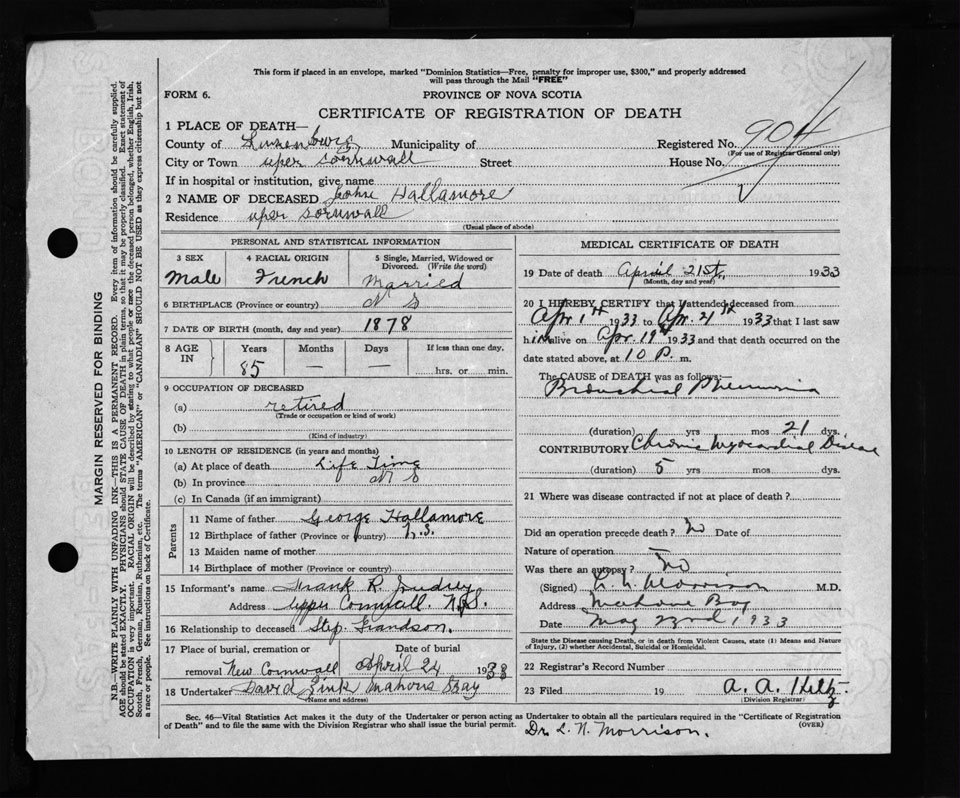 This form if placed in an envelope, marked "Dominion Statistics—Free, penalty for improper use, $300," and properly addressed
will pass through the Mail "FREE"
FORM 6.
PROVINCE OF NOVA SCOTIA
CERTIFICATE OF REGISTRATION OF DEATH
1 PLACE OF DEATH—
County of Lunenburg Municipality of Registered No. 904
(For use of Registrar General only)
City or Town uper Cornwall Street House No.
If in hospital or institution, give name
2 NAME OF DECEASED John Hallamore
Residence uper Cornwall
(Usual place of abode)
PERSONAL AND STATISTICAL INFORMATION
3 SEX 4 RACIAL ORIGIN 5 Single, Married, Widowed or
Divorced. (Write the word)
Male French Married
6 BIRTHPLACE (Province or country) N S
7 DATE OF BIRTH (month, day and year) 1878
8 AGE IN Years Months Days If less than one day.
85 — — hrs. or min.
9 OCCUPATION OF DECEASED
(a) retired
(Trade or occupation or kind of work)
(b)
(Kind of industry)
10 LENGTH OF RESIDENCE (in years and months)
(a) At place of death Life Time
(b) In province N S
(c) In Canada (if an immigrant)
Parents
11 Name of father George Hallamore
12 Birthplace of father (Province or country) N.S.
13 Maiden name of mother
14 Birthplace of mother (Province or country)
15 Informant's name Frank R.
Address Upper Cornwall. N.S.
16 Relationship to deceased Step. Grandson.
17 Place of burial, cremation or Date of burial
removal New Cornwall April 24 1933
18 Undertaker David Zink Mahone Bay
(Name and address)
MEDICAL CERTIFICATE OF DEATH
19 Date of death April 21st, 1933
(Month, day and year)
20 I HEREBY CERTIFY that I attended deceased from
Apr 1st 1933 to Apr. 21st 1933 that I last saw
him alive on Apr. 19th 1933 and that death occurred on the
date stated above, at 10 P. m.
The CAUSE of DEATH was as follows:
Bronchial Pneumonia
(duration) yrs mos 21 dys.
CONTRIBUTORY Chronic Myocardial Disease
(duration) 5 yrs mos dys.
21 Where was disease contracted if not at place of death?
Did an operation precede death? No Date of
Nature of operation
Was there an autopsy? No
(Signed) L. N. Morrison M.D.
Address Mahone Bay
Date May 22nd, 1933
State the Disease causing Death, or in death from Violent Causes, state (1) Means and Nature
of Injury, (2) whether Accidental, Suicidal or Homicidal.
22 Registrar's Record Number
23 Filed 19 A. A. Hiltz
(Division Registrar)
Sec. 46—Vital Statistics Act makes it the duty of the Undertaker or person acting as Undertaker to obtain all the particulars required in the "Certificate of Registration
of Death" and to file the same with the Division Registrar who shall issue the burial permit. (OVER)
Dr. L. N. Morrison.
MARGIN RESERVED FOR BINDING
N.B.—WRITE PLAINLY WITH UNFADING INK—THIS IS A PERMANENT RECORD. Every item of information should be carefully supplied.
AGE should be stated EXACTLY. PHYSICIANS should STATE CAUSE OF DEATH in plain terms, so that it may be properly classified. Exact statement of
OCCUPATION is very important. RACIAL ORIGIN will be described by stating to what people or race the deceased person belonged, whether English, Irish,
Scotch, French, German, Russian, Ruthenian, etc. The terms "AMERICAN" or "CANADIAN" SHOULD NOT BE USED as they express citizenship but not
a race or people. See instructions on back of Certificate.